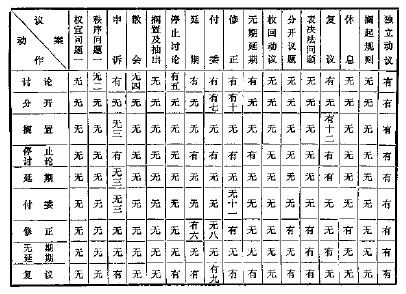 议案
动作
权宜问题一 秩序问题一 申诉 散会 搁置及抽出 停止讨论 延期 付委 修正 无期延期 收回动议 分开议题 表决法问题 复议 休息 搁起规则 独立动议
讨论 无 无二 有 无四 无 有五 有 有 有 有 无 无 无 有 无 无 有
分开 无 无 无 无 无 无 无 有七 有十 无 无 无 无 无 无 无 有
搁置 无 无 无三 无 无 无 无 无 无 无 无 无 无 有十二 无 无 有
停止讨论 无 无 有 无 无 无 有 有 有 有 无 无 无 有 无 无 有
延期 无 无 无三 无 无 无 无 无 无 无 无 无 无 无 无 无 有
付委 无 无 无三 无 无 无 无 无 无十一 无 无 无 无 无 无 无 有
修正 无 无 无 无 无 无 有六 无八 有 无 无 有 有 无 有 无 有
无期延期 无 无 无 无 无 无 无 无 无 无 无 无 无 无 无 无 有
复议 无 无 有 无 无 有 有 有九 有 有 有 有 有 无 无 无 有